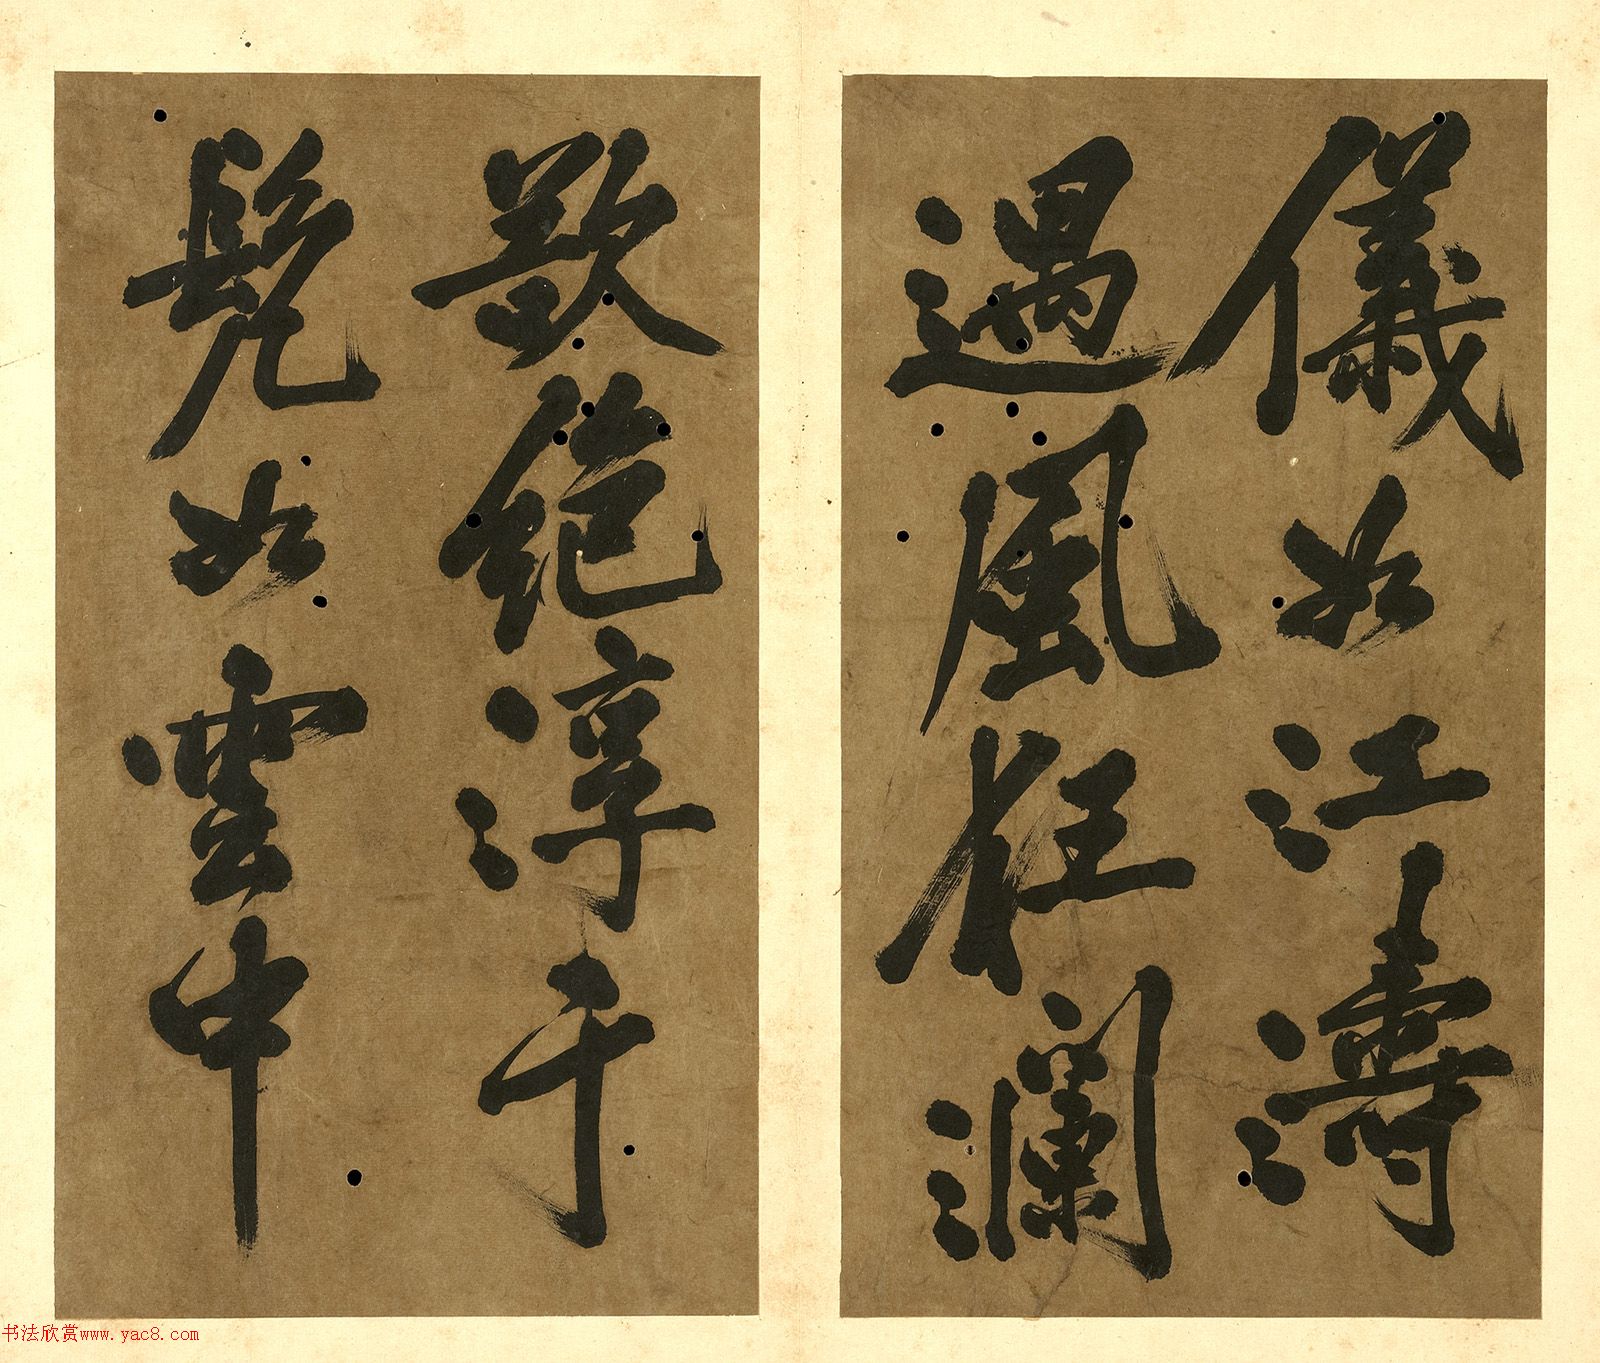 儀如江濤
遇風狂瀾
絕淳于
髡如雲中
书法欣赏www.yac8.com